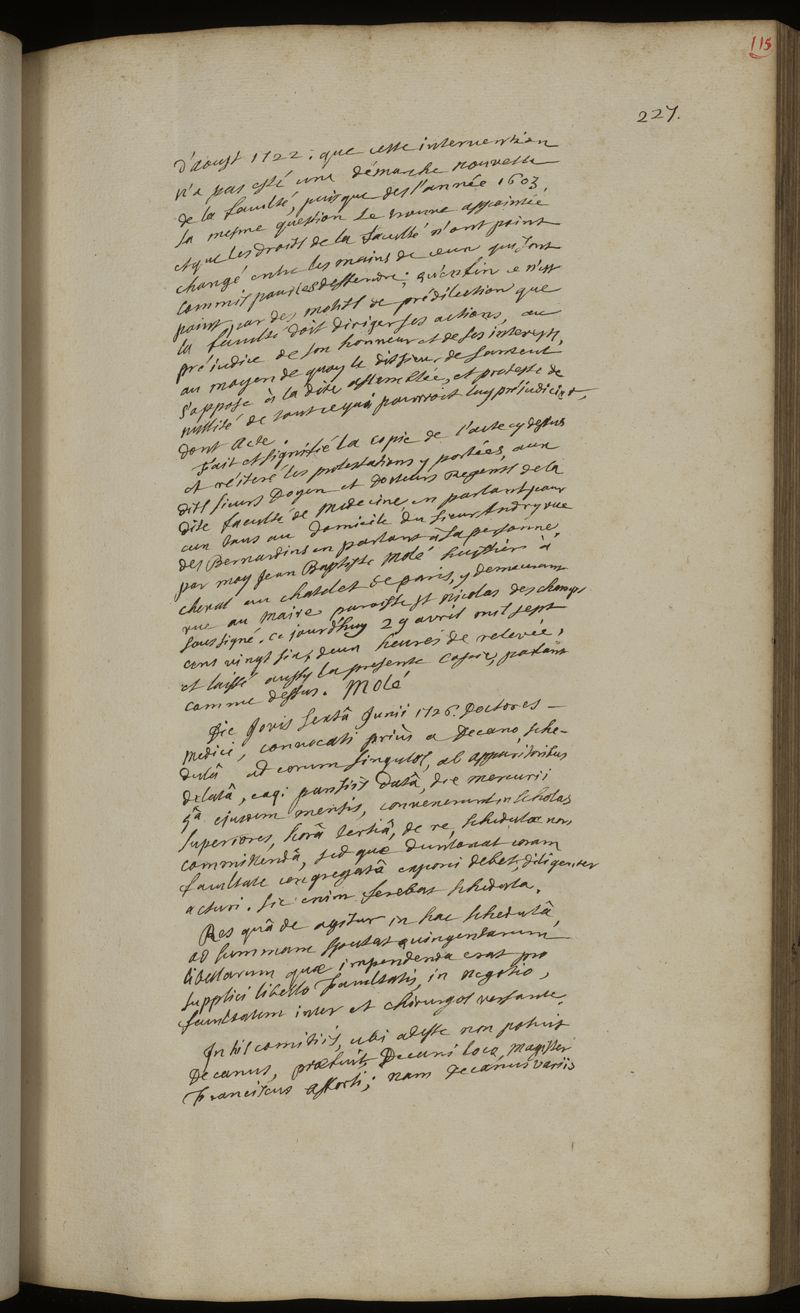 115
227.
d'aoust 1722. que cette intervention
n'a pas esté une démarche nouvelle
de la faculté, puisque des l'année 1603,
la mesme question se trouve appointée
et que les droits de la faculté n'ont point
changé entre les mains de ceux qui sont
commis pour les deffendre; qu'enfin ce n'est
point par des motifs de prédilection que
la faculté doit diriger ses actions, au
préjudice de son honneur et de ses interests,
au moyen de quoy le dit sieur de
s'oppose à la dite assemblée, et proteste de
nullité de tout ce qui pourroit luy préjudicier,
dont acte.
Fait et signifié la copie de l'acte cy dessus
et réiteré les protestations y portées, aux
dits sieurs Doyen et docteurs Regents de la
dite faculté de Medecine, en parlant pour
eux tous au domicile du sieur Andry rue
des Bernardins en parlant à sa personne,
par moy Jean Baptiste Molé huissier à
cheval au chatelet de paris, y demeurant
rue au Maire paroisse st Nicolas des champs
soussigné. ce jourd'huy 29 avril mil sept
cens vingt six, deux heures de relevée,
et laissé aussy la presente copie, parlant
comme dessus. Molé
Die Jovis sextâ Junii 1726. Doctores
medici, convocati priùs a Decano, sche-
dulâ ad eorum singulos, ab apparitoribus
delatâ, eaq; parisiis datâ, die mercurii
5â ejusdem mensis, convenerunt in scholas
superiores, horâ tertiâ, de re, schedulae non
committendâ, sed quae duntaxat coram
facultate congregatâ exponi debet, diligenter
acturi. sic enim ferebat schedula.
Res quâ de agitur in hac schedulâ,
ad summam spectat quingentarum
libellarum quae impendenda erat pro
supplici libello Facultatis, in negotio,
facultatem inter et chirurgos versante.
In his comitiis, ubi adesse non potuit
Decanus, praefuit Decani loco, Magister
Franciscus Afforti; nam Decanus variis